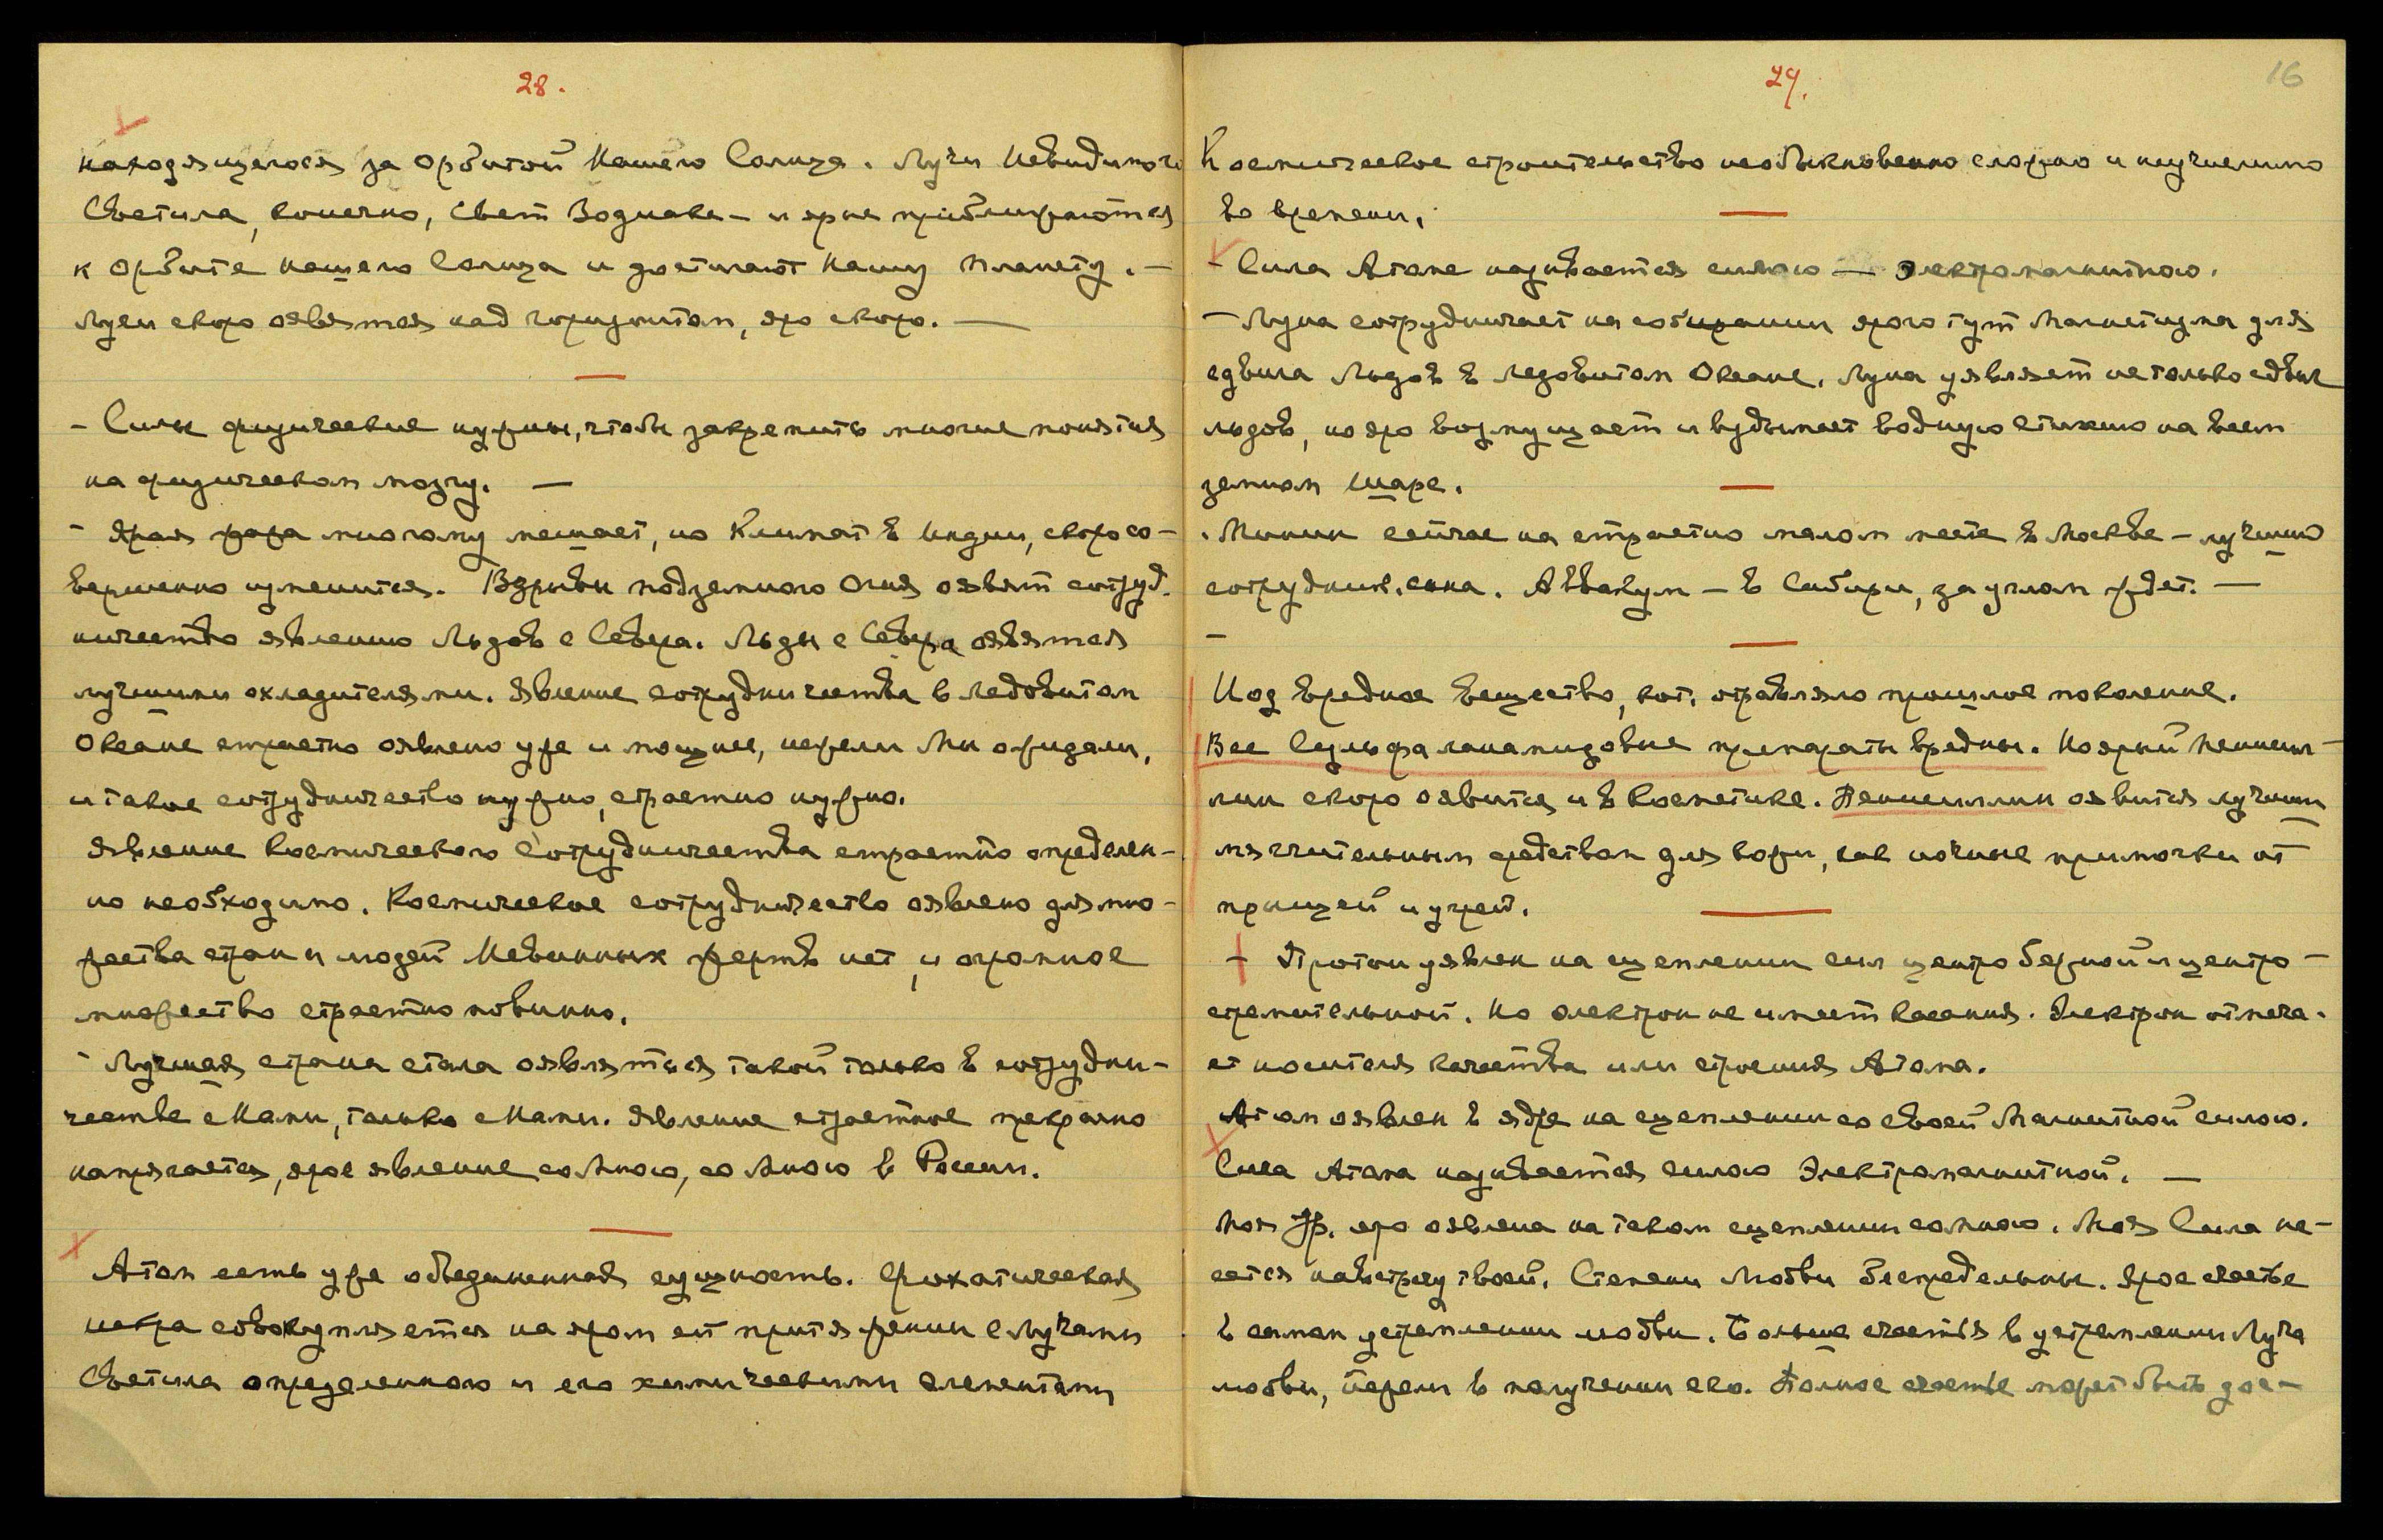 28.
находящегося за орбитой Нашего Солнца. Лучи Невидимого
Светила, конечно, Свет Зодиака – и ярые приближаются
к орбите нашего Солнца и достигают Нашу Планету. —
Лучи скоро оявятся над горизонтом, яро скоро. —
- Силы физические нужны, чтобы закрепить многие понятия
на физическом мозгу. —
- Ярая жара многому мешает, но Климат в Индии, скоро со-
вершенно изменится. Взрывы подземного Огня оявят сотруд-
ничество явлению Льдов с Севера. Льды с Севера оявятся
лучшими охладителями. Явление сотрудничества в Ледовитом
Океане страстно оявлено уже и мощнее, нежели Мы ожидали,
и такое сотрудничество нужно, страстно нужно.
Явление Космического Сотрудничества страстно определен-
но необходимо. Космическое сотрудничество оявлено для мно-
жества стран и людей Невинных жертв нет, и огромное
множество страстно повинно.
- Лучшая страна стала оявляться такой только в сотрудни-
честве с Нами, только с Нами. Явление страстное прекрасно
напрягается, ярое явление со Мною, со Мною в России.
Атом есть уже объединенная сущность. Фохатическая
искра совокупляется на яром ей притяжении с Лучами
Светила определенного и его химическими элементами
29.
16
Космическое строительство необыкновенно сложно и
во времени.
- Сила Атома называется силою — электромагнитною.
- Луна сотрудничает на собирании ярого тут Магнетизма для
сдвига Льдов в Ледовитом Океане. Луна уявляет не только сдвиг
льдов, но яро возмущает и вздымает водную стихию на всем
земном Шаре.
. Минин сейчас на страстно малом месте в Москве – лучший
сотрудник. сына. Аввакум – в Сибири, за углом ждет. —
-
Иод вредное вещество, кот. отравляло прошлое поколение.
Все Сульфаланамидовые препараты вредны. Но ярый Пеницил-
лин скоро оявится и в Косметике. Пенициллин оявится лучшим
мягчительным средством для кожи, как ночные примочки от
прыщей и угрей.
- Протон уявлен на сцеплении сил центробежной и центро-
стремительной. Но электрон не имеет касания. Электрон отмеча-
ет носителя качества или строения Атома.
Атом оявлен в ядре на сцеплении со своей Магнитной силою.
Сила Атома называется силою Электромагнитной. —
Моя яро оявлена на таком сцеплении со мною. Моя Сила не-
сется навстречу твоей. Степени Любви беспредельны. Ярое счастье
в самом устремлении любви. Больше счастья в устремлении Луча
любви, нежели в получении его. Полное счастье может быть дос-